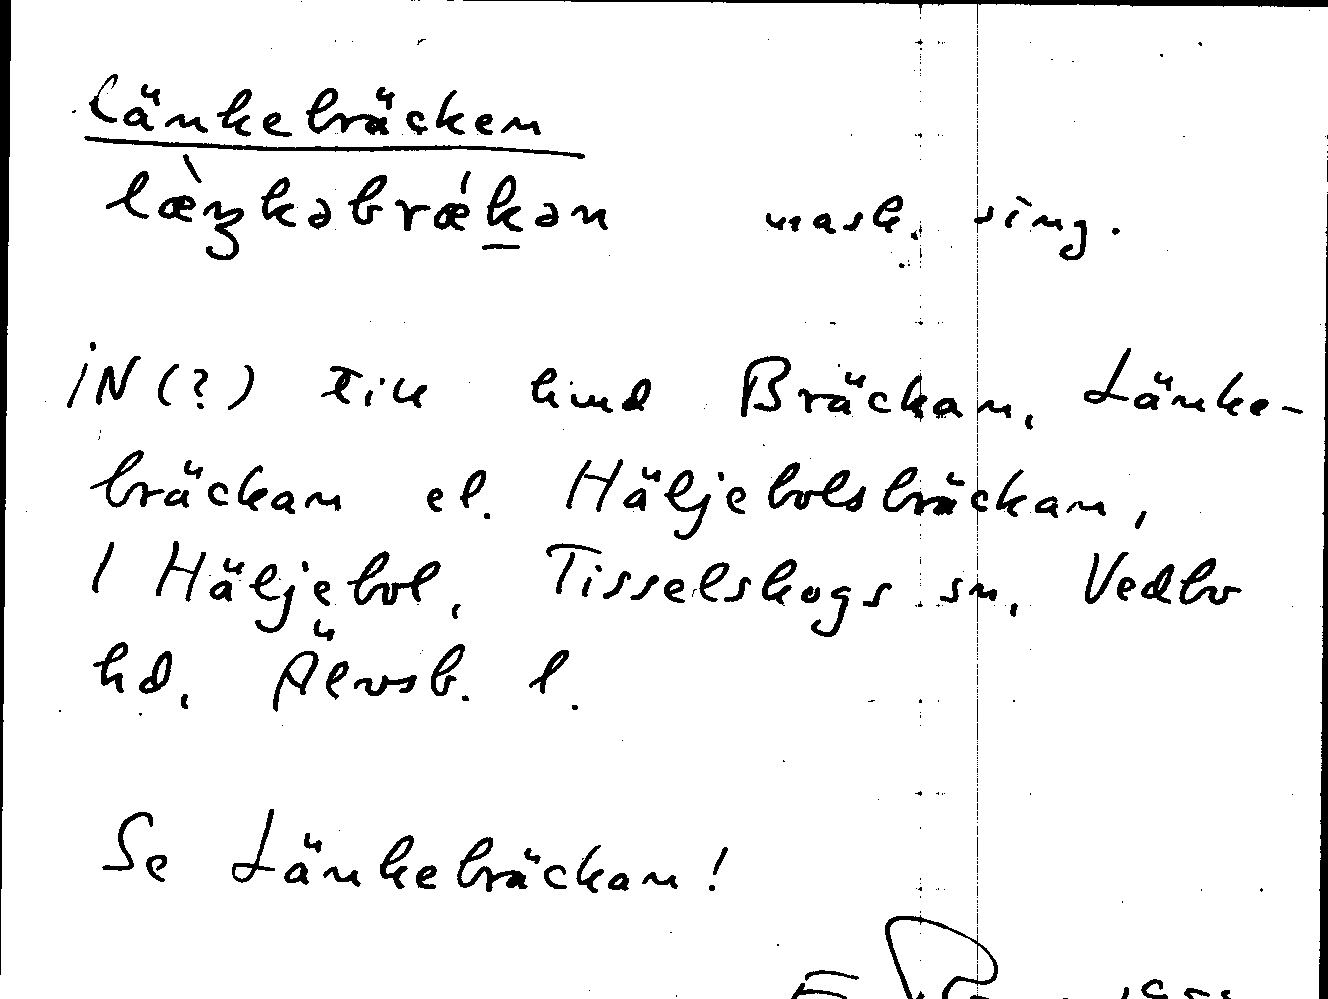 Länkebräcken
læ̀ŋkəbrǽk̲ən mask. sing.
IN(?) till hmd Bräckan, Länke-
bräckan el. Häljebolsbräckan,
i Häljebol, Tisselskogs sn, Vedbo
hd, Älvsb. l.
Se Länkebräckan!